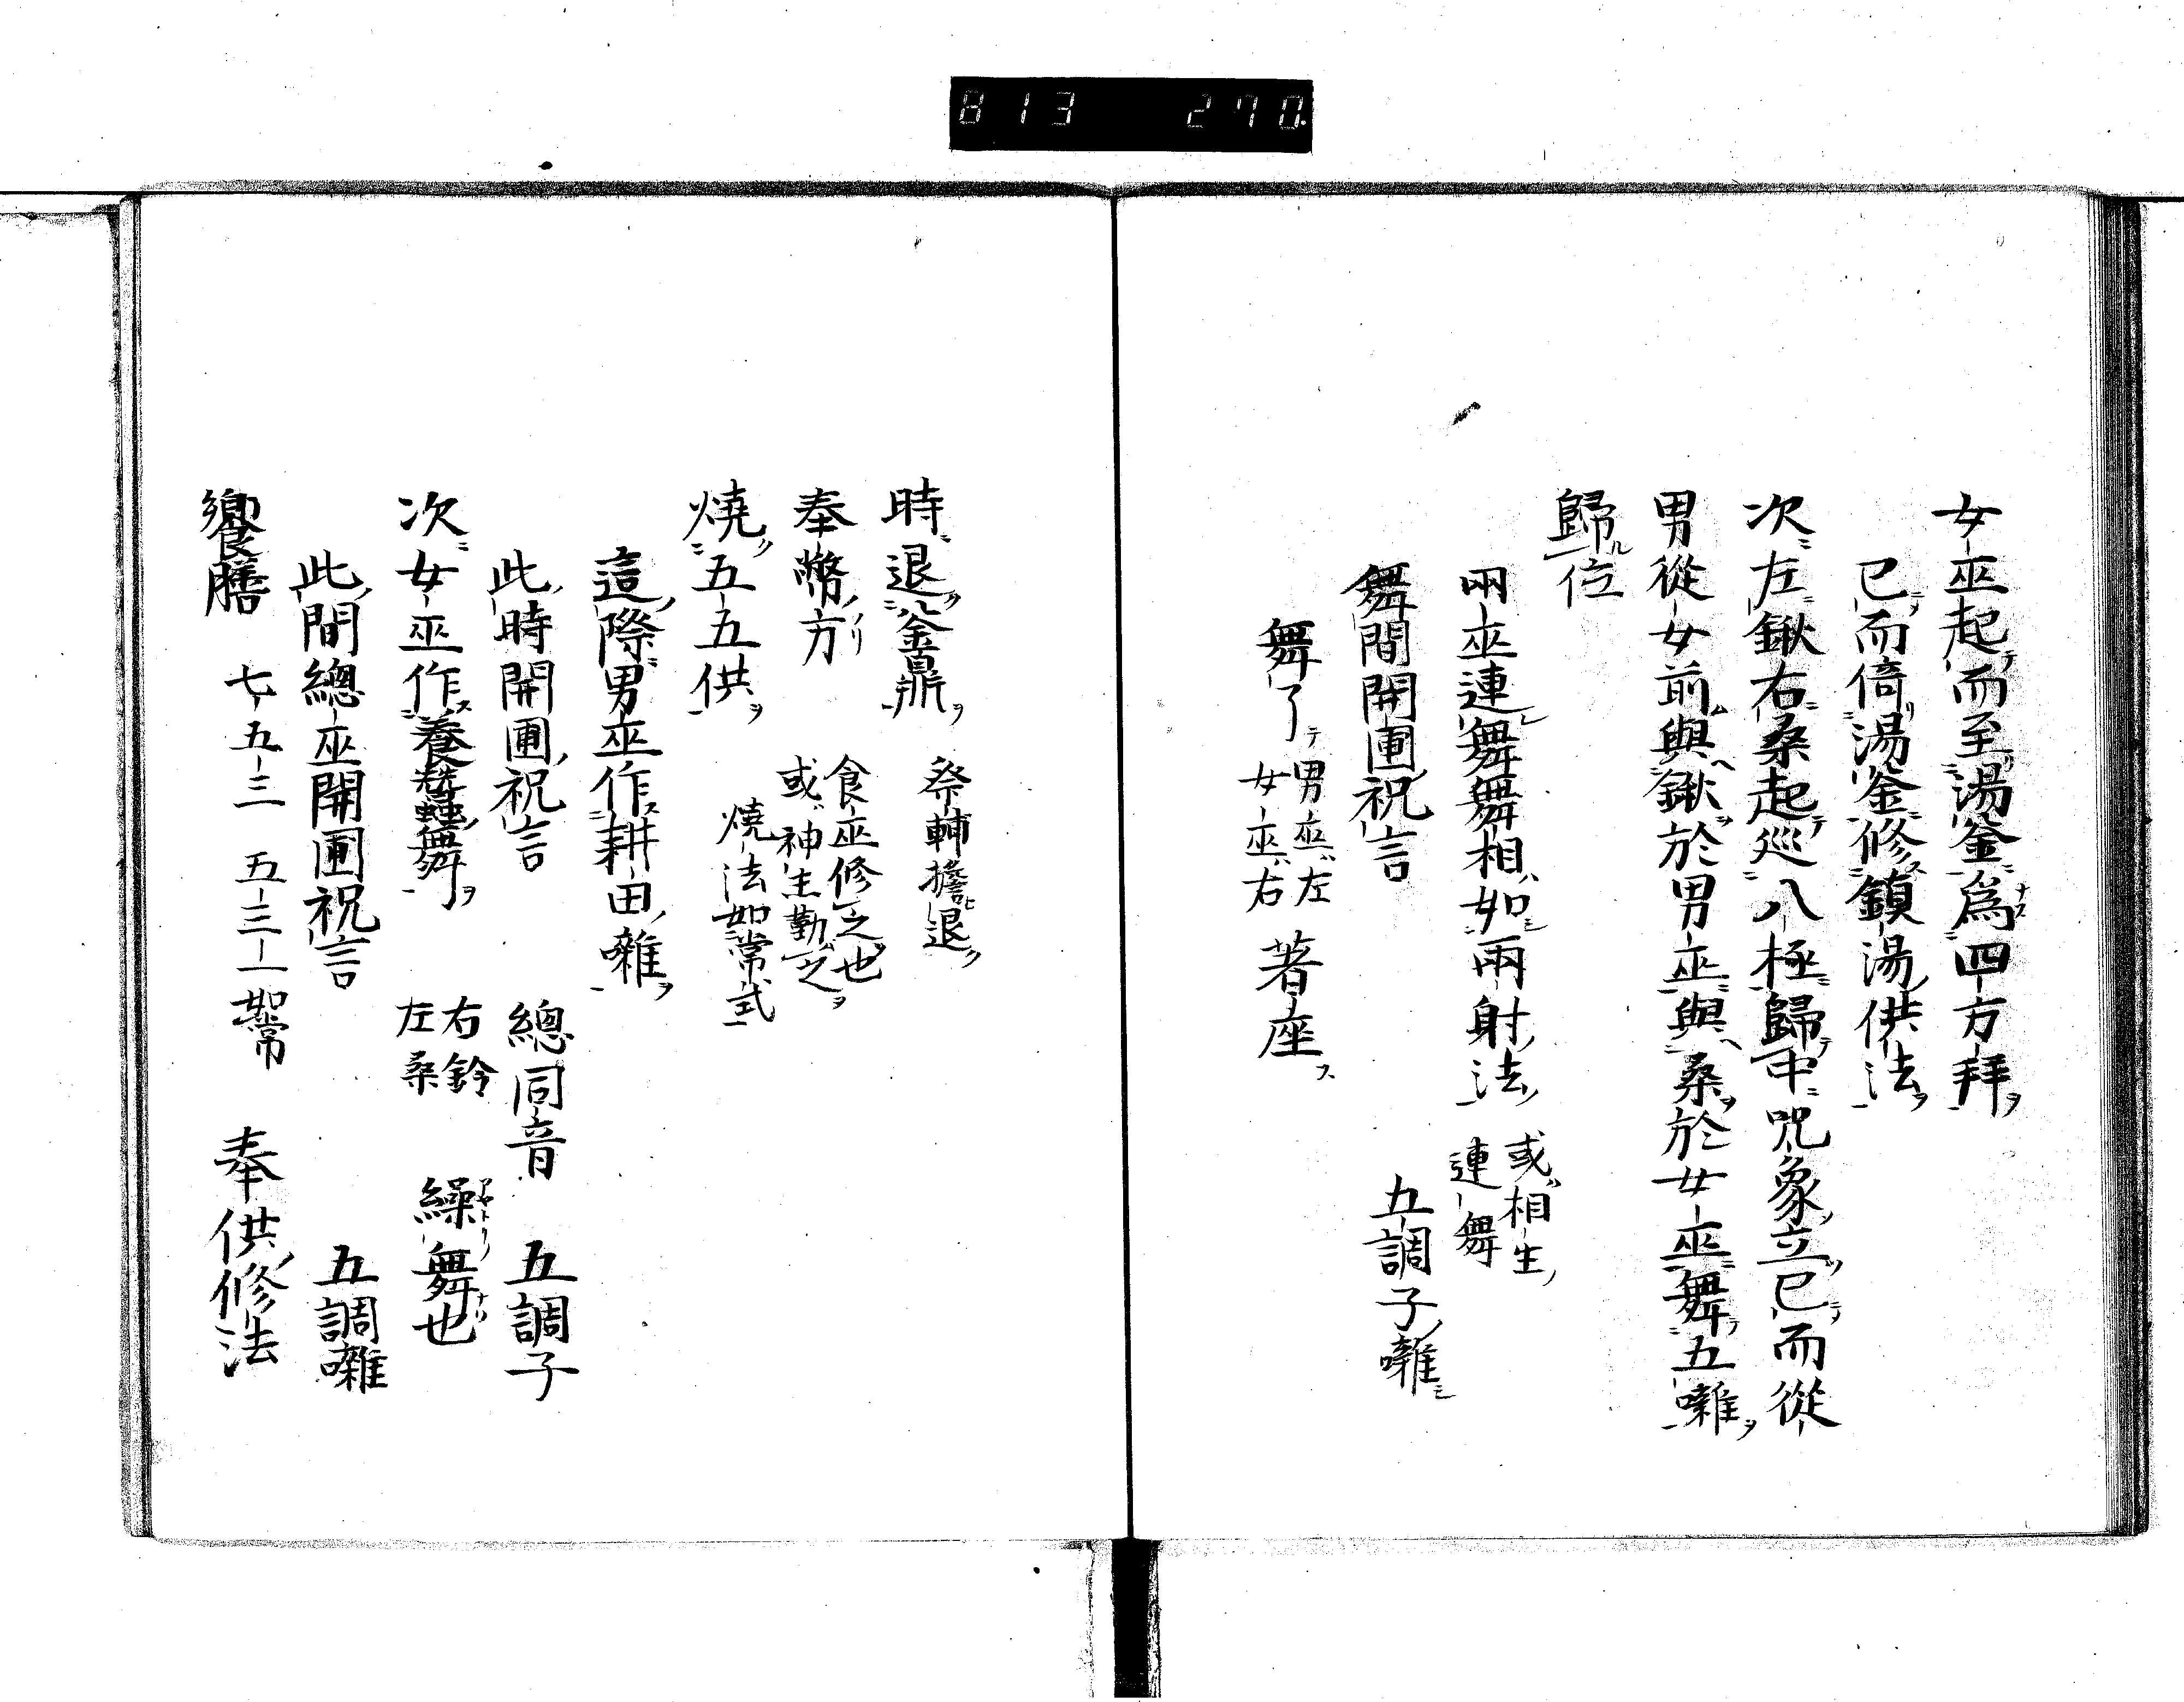 813 270
女巫起而至湯釜爲四方拜
已而倚湯釜修鎮湯供法
次左鍬右桑起巡八極歸中咒象立已而從
男從女前與鍬於男巫與桑於女巫舞五囃
歸位
兩巫連舞舞相如兩射法 或相生連舞
舞間開圃祝言 五調子囃
舞了 男巫左女巫右 著座
時退釜鼎 祭輔擔退
奉幣方 食巫修之也或神主勤之
燒五五供 燒法如常式
這際男巫作耕田囃
此時開圃祝言 總同音 五調子
次女巫作養蠶舞 右鈴左桑 繰舞也
此間總巫開圃祝言 五調囃
饗膳 七五三 五三一如常 奉供修法